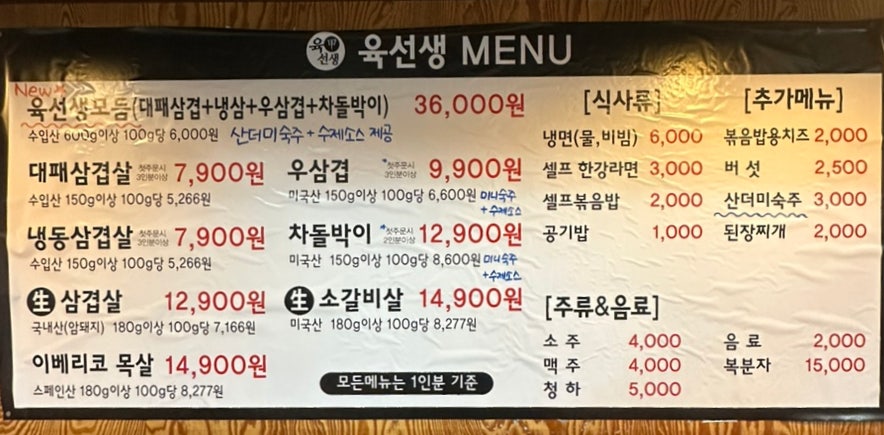 육선생 육선생 MENU
New
육선생모듬(대패삼겹+냉삼+우삼겹+차돌박이) 36,000원
수입산 600g이상 100g당 6,000원 산더미숙주+수제소스 제공
대패삼겹살 첫주문시 3인분이상 7,900원
수입산 150g이상 100g당 5,266원
냉동삼겹살 첫주문시 3인분이상 7,900원
수입산 150g이상 100g당 5,266원
生 삼겹살 12,900원
국내산(암돼지) 180g이상 100g당 7,166원
이베리코 목살 14,900원
스페인산 180g이상 100g당 8,277원
우삼겹 *첫주문시 3인분이상 9,900원
미국산 150g이상 100g당 6,600원 미니숙주
+수제소스
차돌박이 *첫주문시 2인분이상 12,900원
미국산 150g이상 100g당 8,600원 미니숙주
+수제소스
生 소갈비살 14,900원
미국산 180g이상 100g당 8,277원
모든메뉴는 1인분 기준
[식사류]
냉면(물,비빔) 6,000
셀프 한강라면 3,000
셀프볶음밥 2,000
공기밥 1,000
[추가메뉴]
볶음밥용치즈 2,000
버섯 2,500
산더미숙주 3,000
된장찌개 2,000
[주류&음료]
소주 4,000
맥주 4,000
청하 5,000
음료 2,000
복분자 15,000